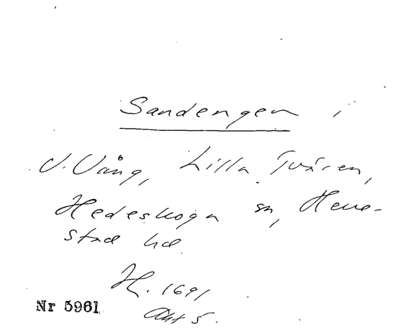 Sandengen i
V. Vång, Lilla Tvären,
Hedeskoga sn, Herre-
stad hd.
H. 1691
Akt 5.
Nr 5961